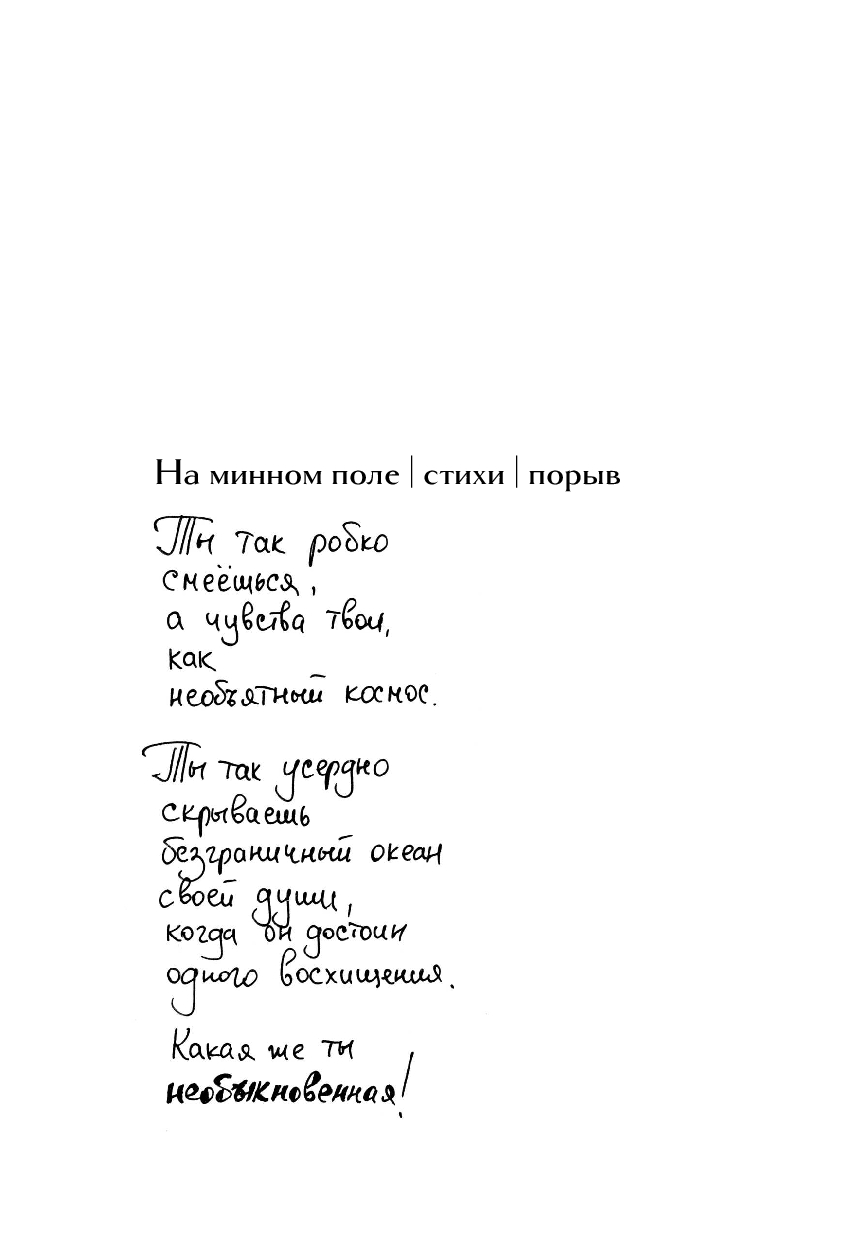 На минном поле | стихи | порыв
Ты так робко
смеёшься,
а чувства твои,
как
необъятный космос.
Ты так усердно
скрываешь
безграничный океан
своей души,
когда он достоин
одного восхищения.
Какая же ты
необыкновенная!